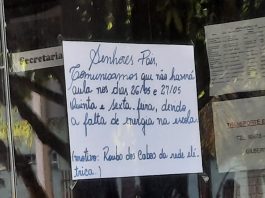 Secretaria
Senhores Pais,
Comunicamos que não haverá
aula nos dias 26/05 e 27/05
Quinta e sexta-feira, devido
a falta de energia na escola.
(motivo: Roubo dos Cabos da rede elé-
trica.)
TRANSPORTE